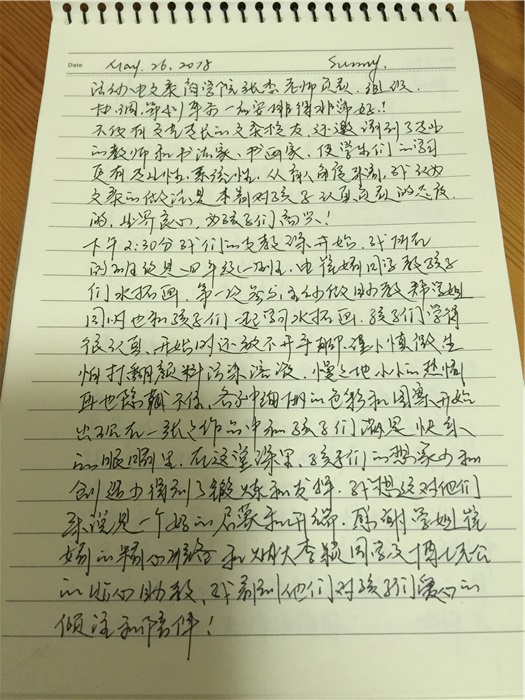 Date May. 26. 2018 Sunny.
活动由文来商学院张杰老师负责，组织、
协调，等到事前一切安排得非常好！
不仅有文专长的文来校友，还邀请到了专业
的教师和书法家、书画家，使学生们的学习
更有专业性、系统性，从育人角度来讲，我认为
文来的做法是本着对孩子认真负责的态度
的，业界良心，为孩子们高兴！
下午2:30分我们的支教课开始，我所在
的班级是四年级一班，由崔娟同学教孩子
们水拓画，第一次参与活动做助教帮学姐
同时也和孩子们一起学习水拓画，孩子们学得
很认真，开始时还放不开手脚，谨小慎微生
怕打翻颜料污染溶液，慢慢地小小的热情
再也隐藏不住，各种调制的色彩和图案开始
出现在一张张作品中和孩子们满是快乐
的眼睛里，在这堂课里，孩子们的想象力和
创造力得到了锻炼和发挥，我想这对他们
来说是一个好的启蒙和开端，感谢学姐崔
娟的精心准备和 李颖同学
的贴心助教，我看到他们对孩子们爱心的
倾注和陪伴！